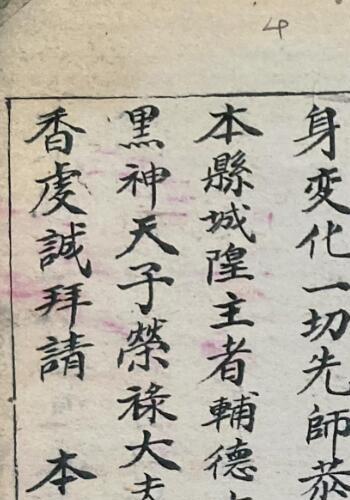 4
身变化一切先師恭
本縣城隍主者輔德
黒神天子榮祿大夫
香虔誠拜請 本